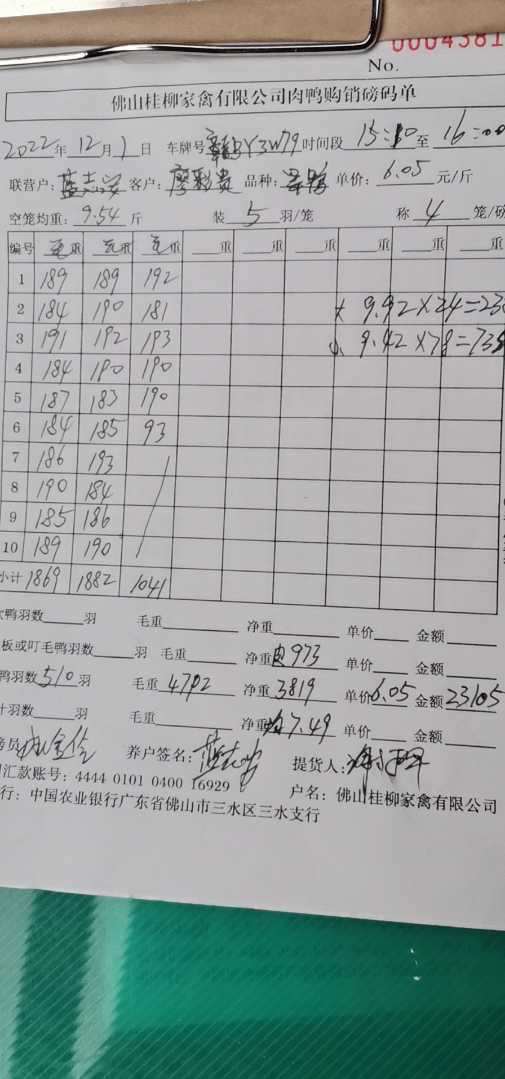 0004381
No.
佛山桂柳家禽有限公司肉鸭购销磅码单
2022年12月1日 车牌号 Y3W79 时间段 15:10 至 16:00
联营户: 客户:廖彩贵 品种: 单价:6.05元/斤
空笼均重:9.54斤 装5羽/笼 称4笼/磅
编号 毛重 毛重 毛重 重 重 重 重 重
1 189 189 192
2 184 190 181 9.92×24=23
3 191 192 193 9.42×78=73
4 184 190 190
5 187 183 190
6 184 185 93
7 186 193
8 190 184
9 185 186
10 189 190
小计 1869 1882 1041
鸭羽数 羽 毛重 净重 单价 金额
板或叮毛鸭羽数 羽 毛重 净重 973 单价 金额
鸭羽数510羽 毛重4792 净重3819 单价6.05 金额23105
计羽数 羽 毛重 净重 7.49 单价 金额
务员 养户签名: 提货人:
汇款账号:4444 0101 0400 16929 户名:佛山桂柳家禽有限公司
行:中国农业银行广东省佛山市三水区三水支行